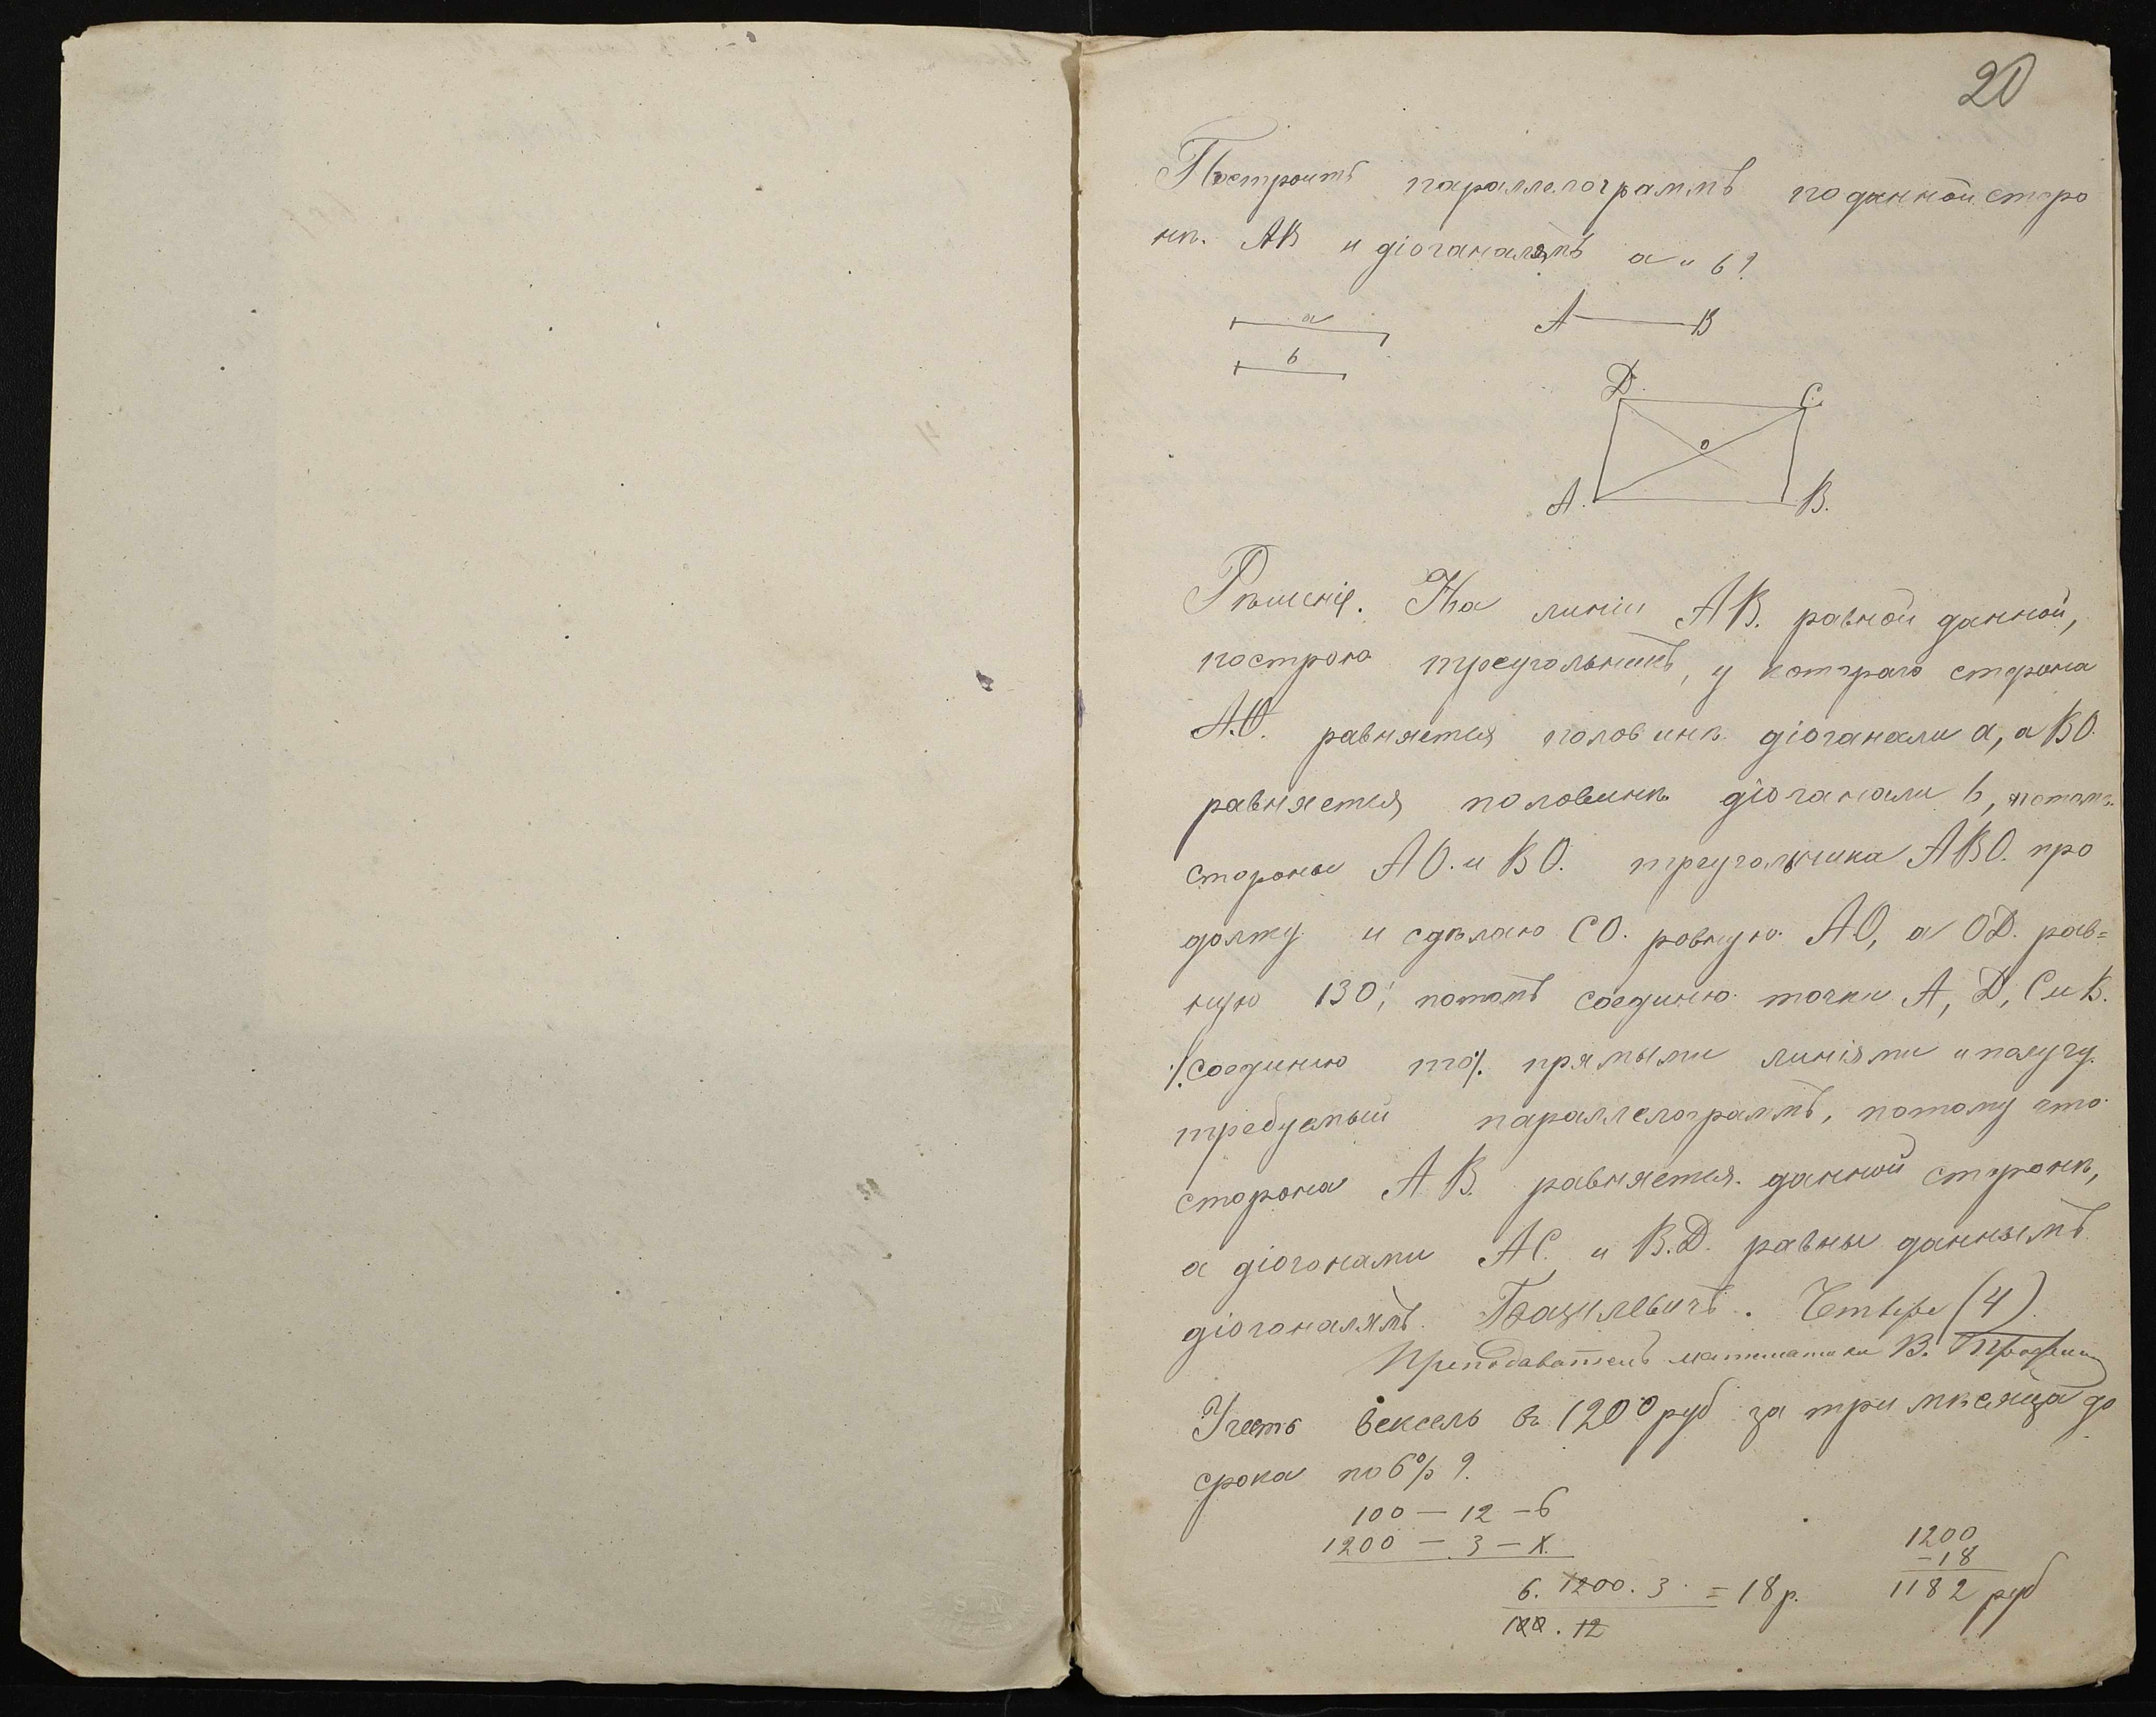 20
Построить параллелограммъ по данной сторо
нѣ АВ и діоганалямъ а и b?
a
A B
b
D. C.
o
A. B.
Рѣшеніе. На линіи АВ. равной данной,
построю треугольникъ, у котораго сторона
А.О. равняется половинѣ діоганали а, а ВО.
равняется половинѣ діоганали b, потомъ
стороны АО. и ВО. треугольника АВО. про
должу и сдѣлаю СО. ровную АО, а ОД. рав=
ную ВО; потомъ соединю точки А, Д, С и В.
·/.соединю то/. прямыми линіями и получу
требуемый параллелограммъ, потому что
сторона АВ. равняется данной сторонѣ,
а діогонами АС. и В.Д. равны даннымъ
діогоналямъ. Бацилевичъ. Четыре (4).
Преподаватель математики В.
Учесть вексель въ 1200 руб за три мѣсяца до
срока по 6% ?
100 — 12 — 6
1200 — 3 — х.
1200
–18
6. 1200. 3 = 18 р. 1182 руб
100 . 12